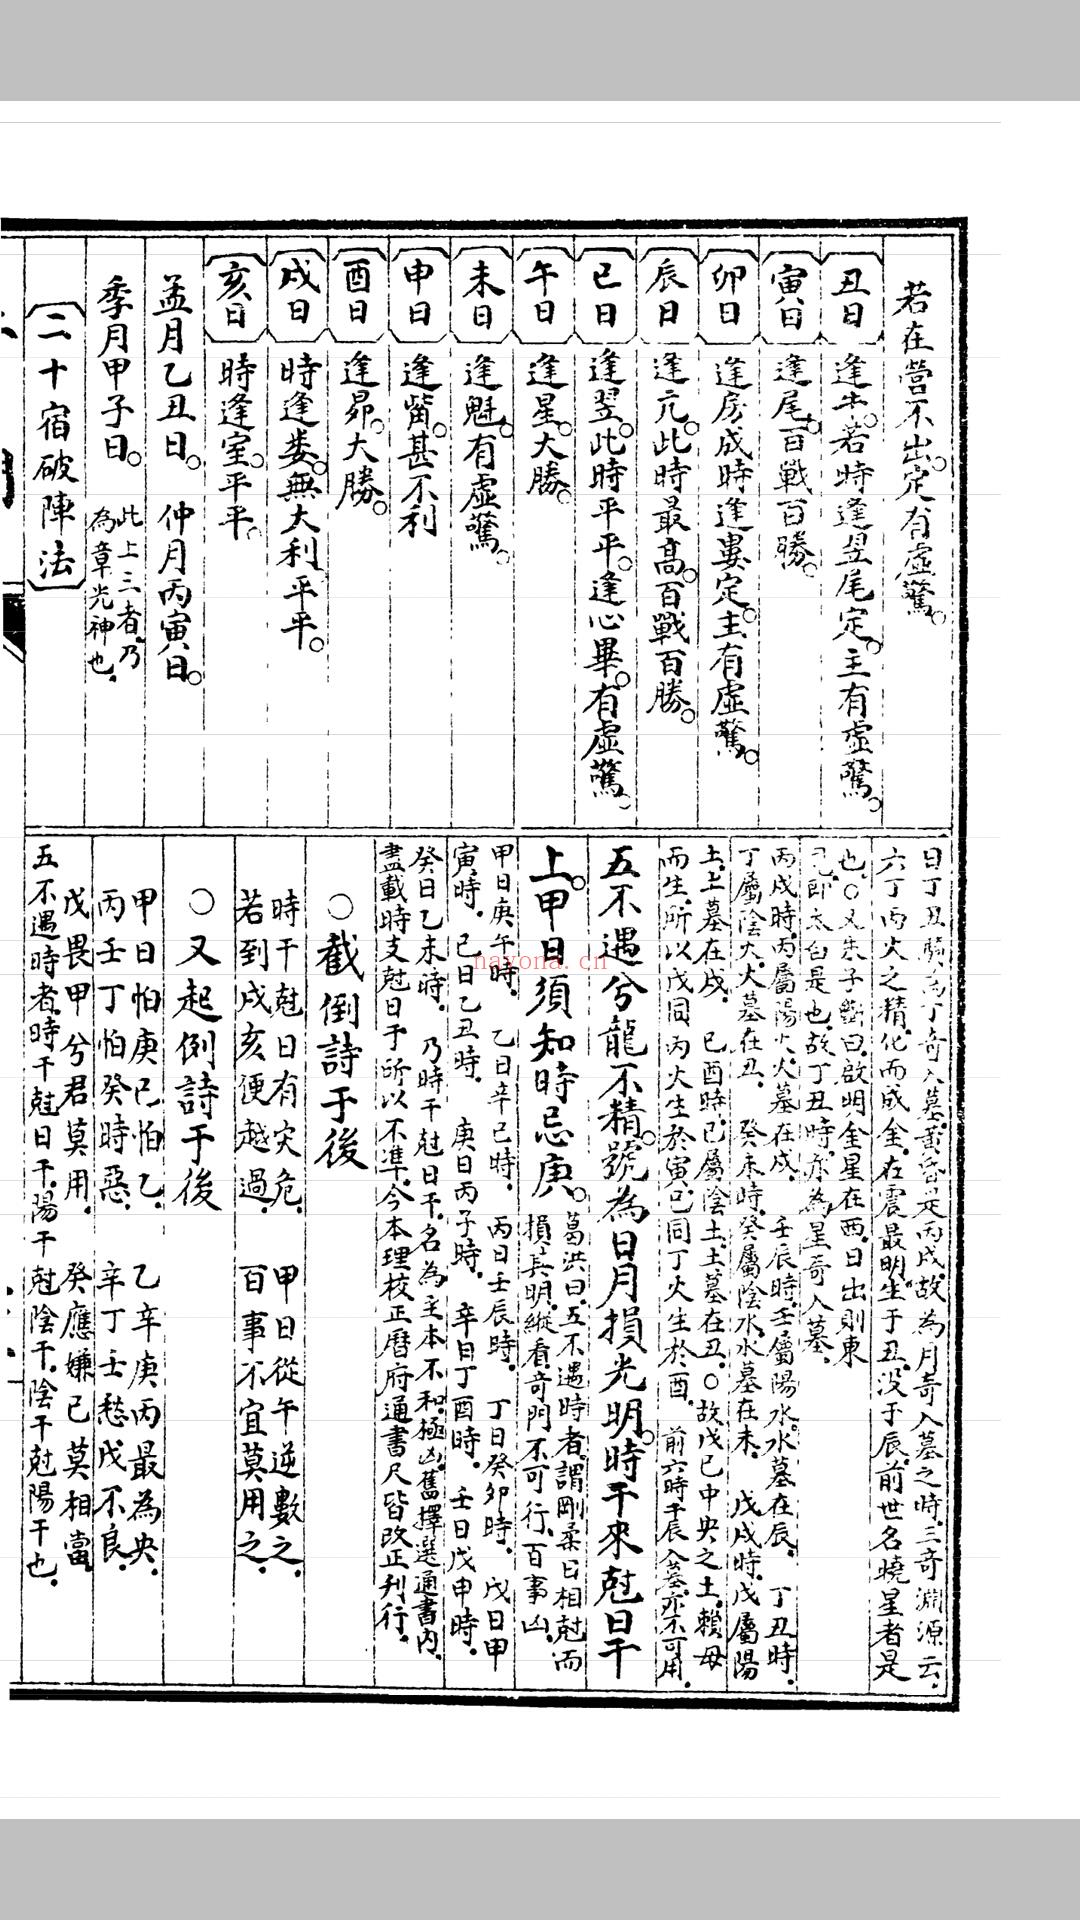 若在營不出定有虛驚
丑日 逢牛若時逢昱尾定主有虛驚
寅日 逢尾百戰百勝
卯日 逢房成時逢婁定主有虛驚
辰日 逢亢此時最高百戰百勝
巳日 逢翌此時平平逢心畢有虛驚
午日 逢星大勝
未日 逢魁有虛驚
申日 逢觜甚不利
酉日 逢昴大勝
戌日 時逢娄無大利平平
亥日 時逢室平平
孟月乙丑日 仲月丙寅日
季月甲子日 此上三者乃
為章光神也
二十宿破陣法
日丁丑時為丁奇入墓黃昏是丙戌故為月奇入墓之時三奇淵源云
六丁丙火之精化而成金在震最明生于丑没于辰前世名曉星者是
也○又朱子斷曰啟明金星在西日出則東
即太白是也故丁丑時亦為星奇入墓
丙戌時丙屬陽火火墓在戌 壬辰時壬屬陽水水墓在辰 丁丑時
丁屬陰火火墓在丑 癸未時癸屬陰水水墓在未 戊戌時戊屬陽
土土墓在戌 己酉時己屬陰土土墓在丑○故戊己中央之土賴母
而生所以戊同丙火生於寅己同丁火生於酉 前六時干辰入墓亦不可用
五不遇兮龍不精號為日月損光明時干來尅日干
上甲日須知時忌庚 葛洪曰五不遇時者謂剛柔日相尅而
損其明縱看奇門不可行百事凶
甲日庚午時 乙日辛巳時 丙日壬辰時 丁日癸卯時 戊日甲
寅時 己日乙丑時 庚日丙子時 辛日丁酉時 壬日戊申時
癸日乙未時 乃時干尅日干名為主本不和極凶舊擇選通書內
盡載時支尅日干所以不凖今本理校正曆府通書尺皆改正刋行
○截倒詩于後
時干尅日有灾危 甲日從午逆數之
若到戌亥便越過 百事不宜莫用之
○又起例詩于後
甲日怕庚己怕乙 乙辛庚丙最為央
丙壬丁怕癸時惡 辛丁壬愁戊不良
戊畏甲兮君莫用 癸應嫌己莫相當
五不遇時者時干尅日干陽干尅陰干陰干尅陽干也